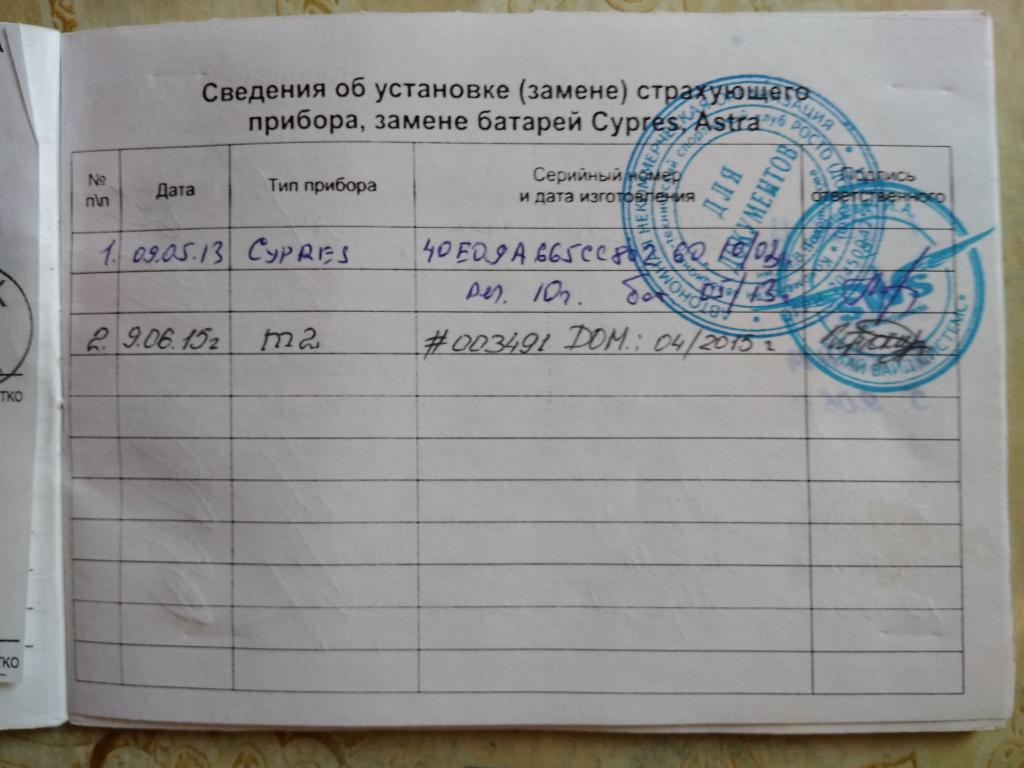 Сведения об установке (замене) страхующего
прибора, замене батарей Cypres, Astra
№ п\п Дата Тип прибора Серийный номер и дата изготовления Подпись ответственного
1. 09.05.13 CYPRES 40E09A665CC8
бат. 03/13г
2. 9.06.15г m2 #003491 DOM.: 04/2015г
АВТОНОМНАЯ НЕКОММЕРЧЕСКАЯ ОРГАНИЗАЦИЯ
клуб РОСТО
ДЛЯ
ДОКУМЕНТОВ
ТКО
ТКО